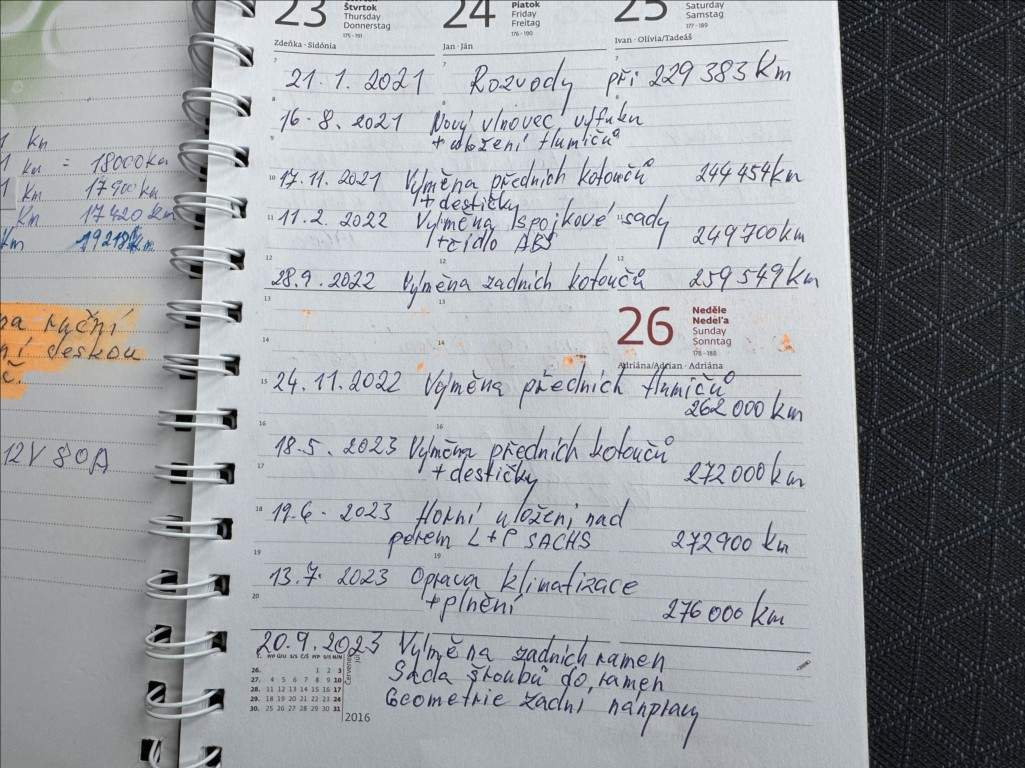 23
Štvrtok
Thursday
Donnerstag
175 - 191
Zdeňka · Sidónia
24
Piatok
Friday
Freitag
176 - 190
Jan · Ján
25
Saturday
Samstag
177 - 189
Ivan · Olívia/Tadeáš
21.1.2021 Rozvody při 229 383 Km
16.8.2021 Nový vlnovec výfuku
+ uložení tlumičů
17.11.2021 Výměna předních kotoučů 244 454km
+ destičky
11.2.2022 Výměna spojkové sady
+ čidlo ABS 249 700km
28.9.2022 Výměna zadních kotoučů 259 549km
26
Neděle
Nedeľa
Sunday
Sonntag
178 - 188
Adriána/Adrian · Adriána
24.11.2022 Výměna předních tlumičů
262 000 km
18.5.2023 Výměna předních kotoučů
+ destičky 272 000 km
19.6.2023 Horní uložení nad
perem L+P SACHS 272 900 km
13.7.2023 Oprava klimatizace
+ plnění 276 000 km
20.9.2023 Výměna zadních ramen
Sada šroubů do ramen
Geometrie zadní nápravy
Červenec
Júl
1 2 3
27. 4 5 6 7 8 9 10
28. 11 12 13 14 15 16 17
29. 18 19 20 21 22 23 24
30. 25 26 27 28 29 30 31
2016
1 km
1 km = 18000km
1 km 17900km
km 17420 km
km 19218km
na ruční
ní deskou
č.
12V 80A